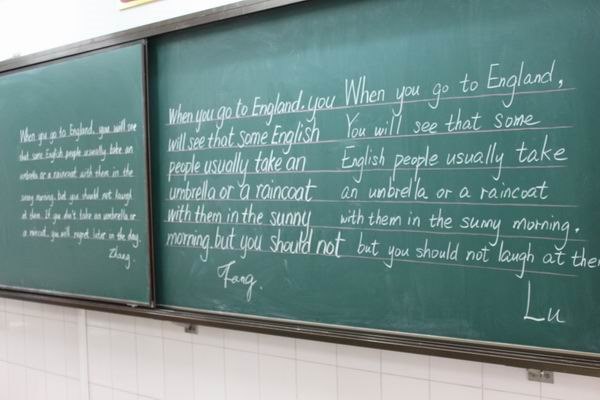 When you go to England, you will see
that some English people usually take an
umbrella or a raincoat with them in the
sunny morning, but you should not laugh
at them. If you don't take an umbrella or
a raincoat, you will regret later in the day.
Zhang.
When you go to England, you
will see that some English
people usually take an
umbrella or a raincoat
with them in the sunny
morning, but you should not
Fang.
When you go to England,
You will see that some
English people usually take
an umbrella or a raincoat
with them in the sunny morning.
but you should not laugh at them
Lu